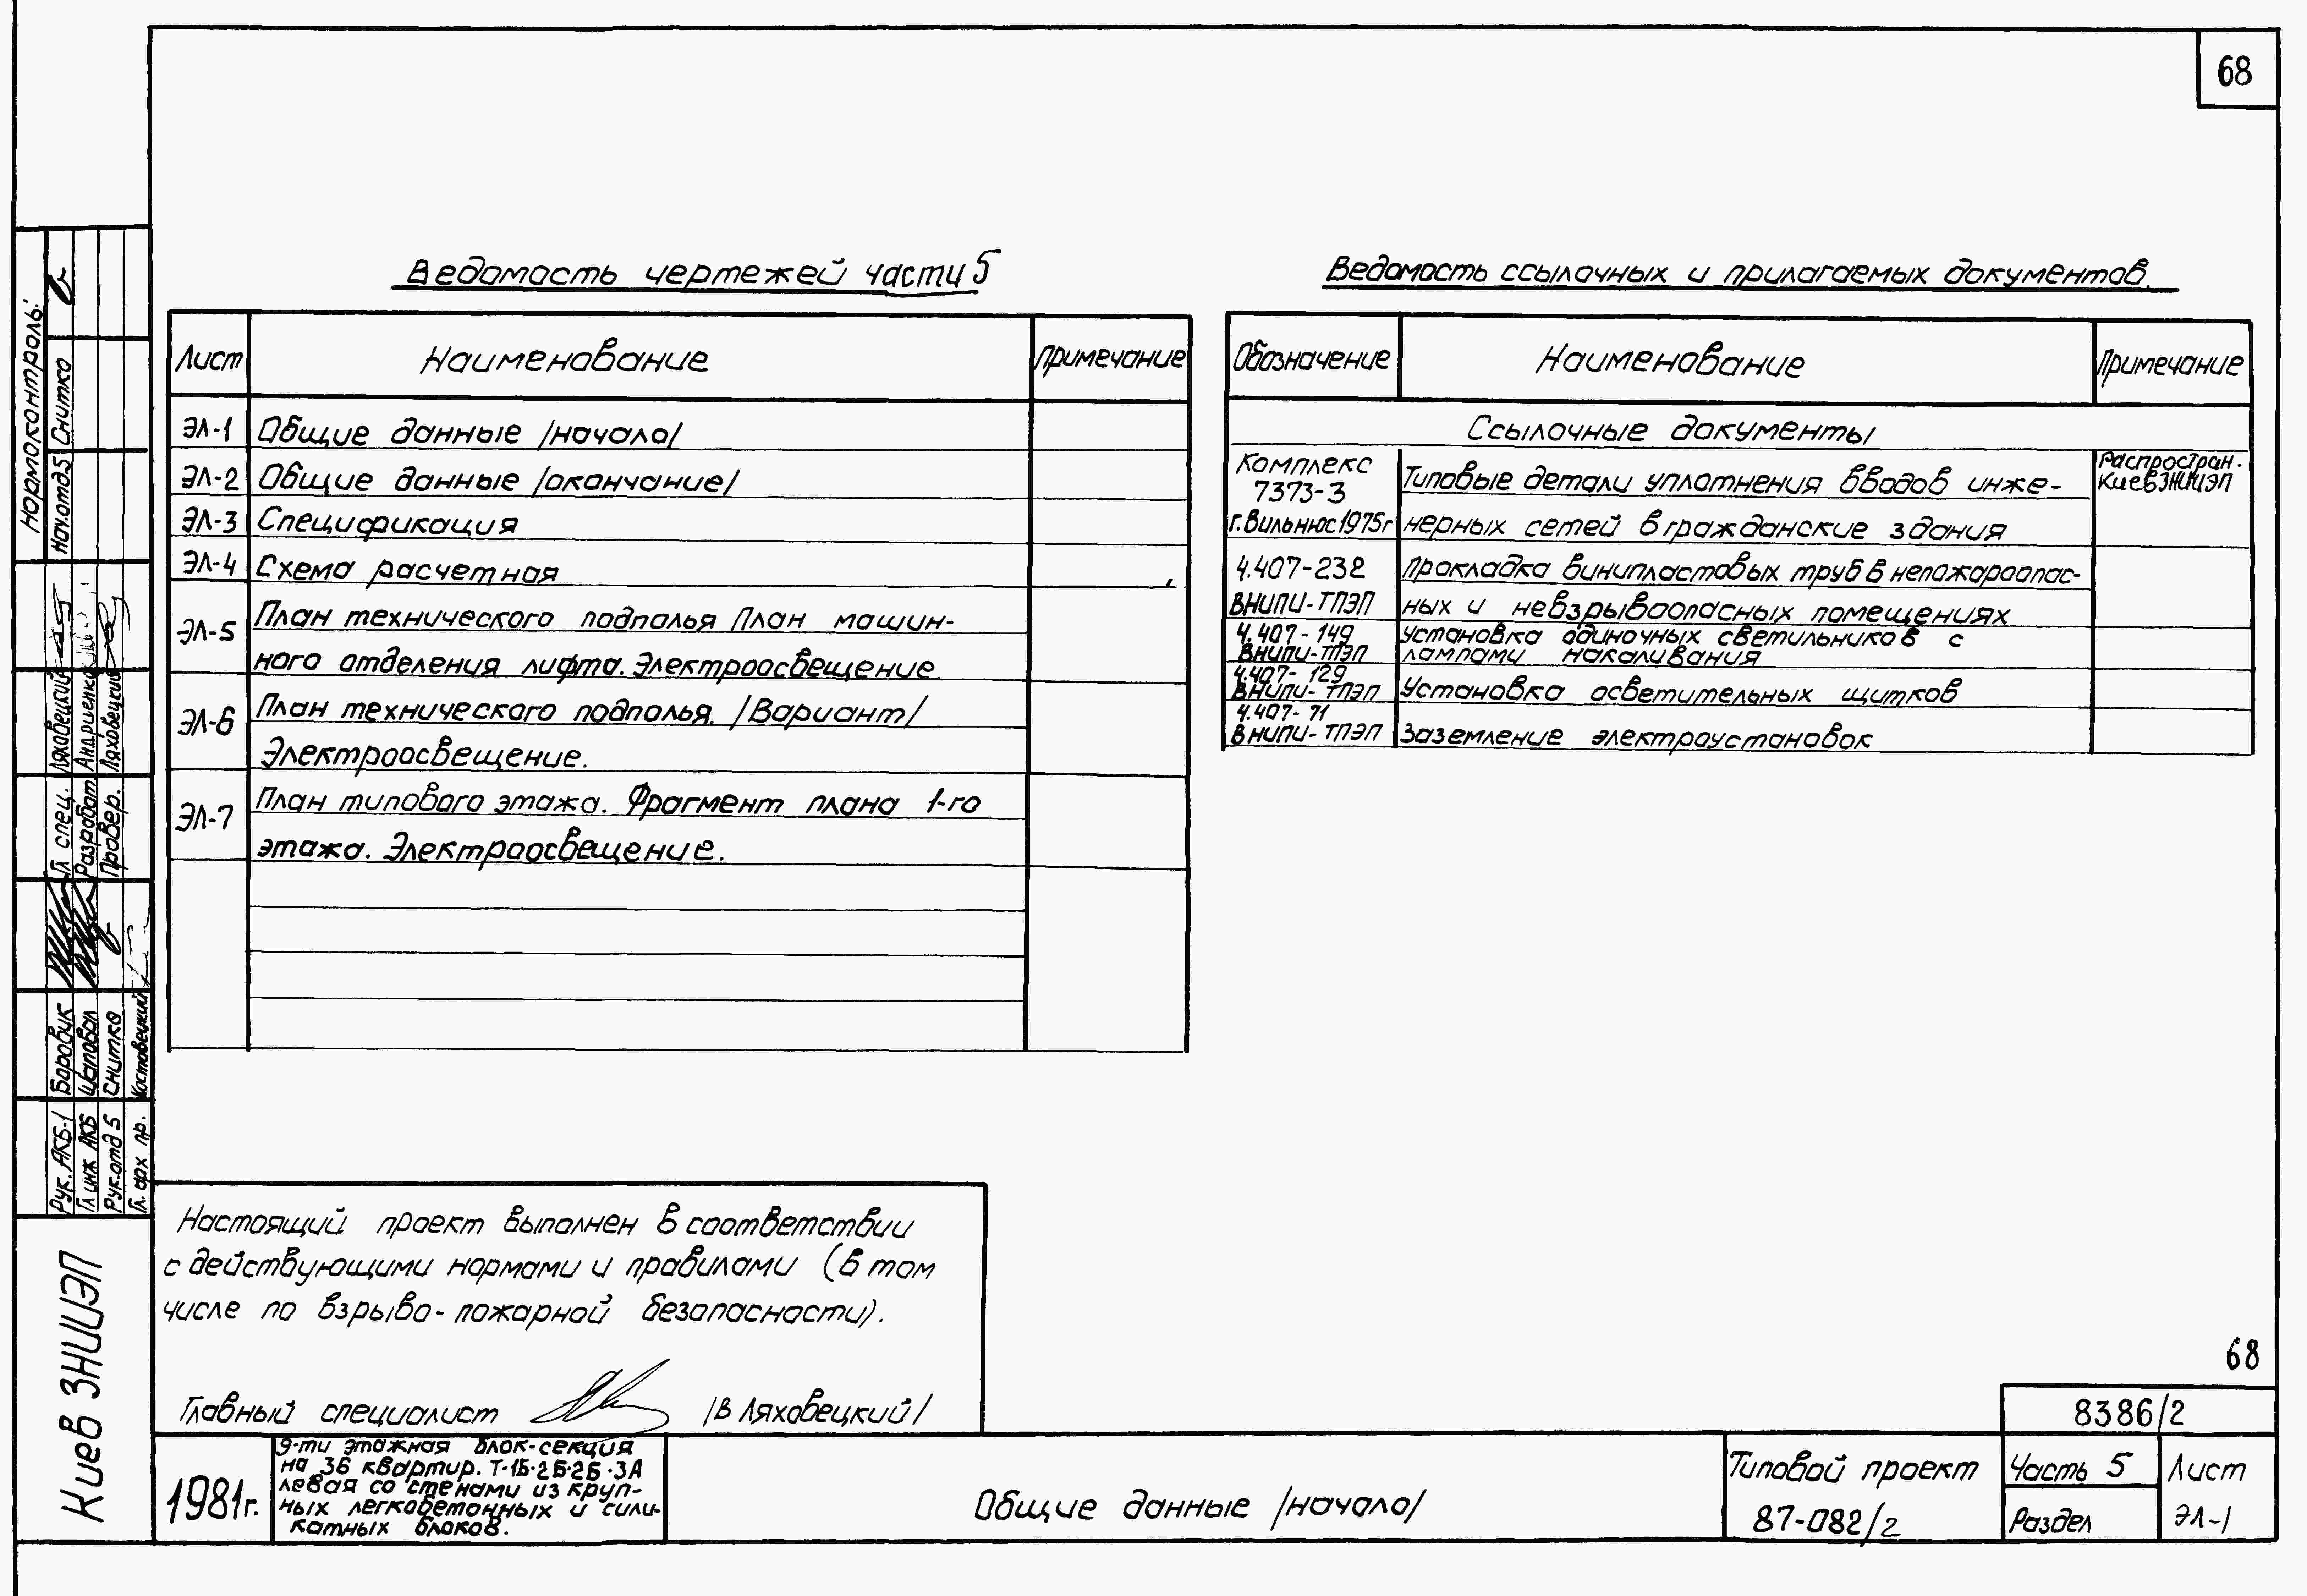 68
Ведомость чертежей части 5
Лист Наименование Примечание
ЭЛ-1 Общие данные /начало/
ЭЛ-2 Общие данные /окончание/
ЭЛ-3 Спецификация
ЭЛ-4 Схема расчетная
ЭЛ-5 План технического подполья План машин-
ного отделения лифта. Электроосвещение.
ЭЛ-6 План технического подполья. /Вариант/
Электроосвещение.
ЭЛ-7 План типового этажа. Фрагмент плана 1-го
этажа. Электроосвещение.
Ведомость ссылочных и прилагаемых документов.
Обозначение Наименование Примечание
Ссылочные документы
Комплекс
7373-3
г. Вильнюс 1975г
Типовые детали уплотнения вводов инже-
нерных сетей в гражданские здания
Распростран.
КиевЗНИИЭП
4.407-232
ВНИПИ-ТПЭП
Прокладка винипластовых труб в непожароопас-
ных и невзрывоопасных помещениях
4.407-149
ВНИПИ-ТПЭП
Установка одиночных светильников с
лампами накаливания
4.407-129
ВНИПИ-ТПЭП
Установка осветительных щитков
4.407-71
ВНИПИ-ТПЭП
Заземление электроустановок
Нормоконтроль:
Нач.отд.5 Снитко
Гл спец. Ляховецкий
Разработ. Андриенко
Провер. Ляховецкий
Рук. АКБ-1 Боровик
Гл инж АКБ Шаповал
Рук.отд 5 Снитко
Гл. арх пр. Костовецкий
Киев ЗНИИЭП
Настоящий проект выполнен в соответствии
с действующими нормами и правилами (в том
числе по взрыво-пожарной безопасности).
Главный специалист /В Ляховецкий/
68
8386/2
1981г.
9-ти этажная блок-секция
на 36 квартир. Т-1Б·2Б·2Б·3А
левая со стенами из круп-
ных легкобетонных и сили-
катных блоков.
Общие данные /начало/
Типовой проект
87-082/2
Часть 5
Раздел
Лист
ЭЛ-1